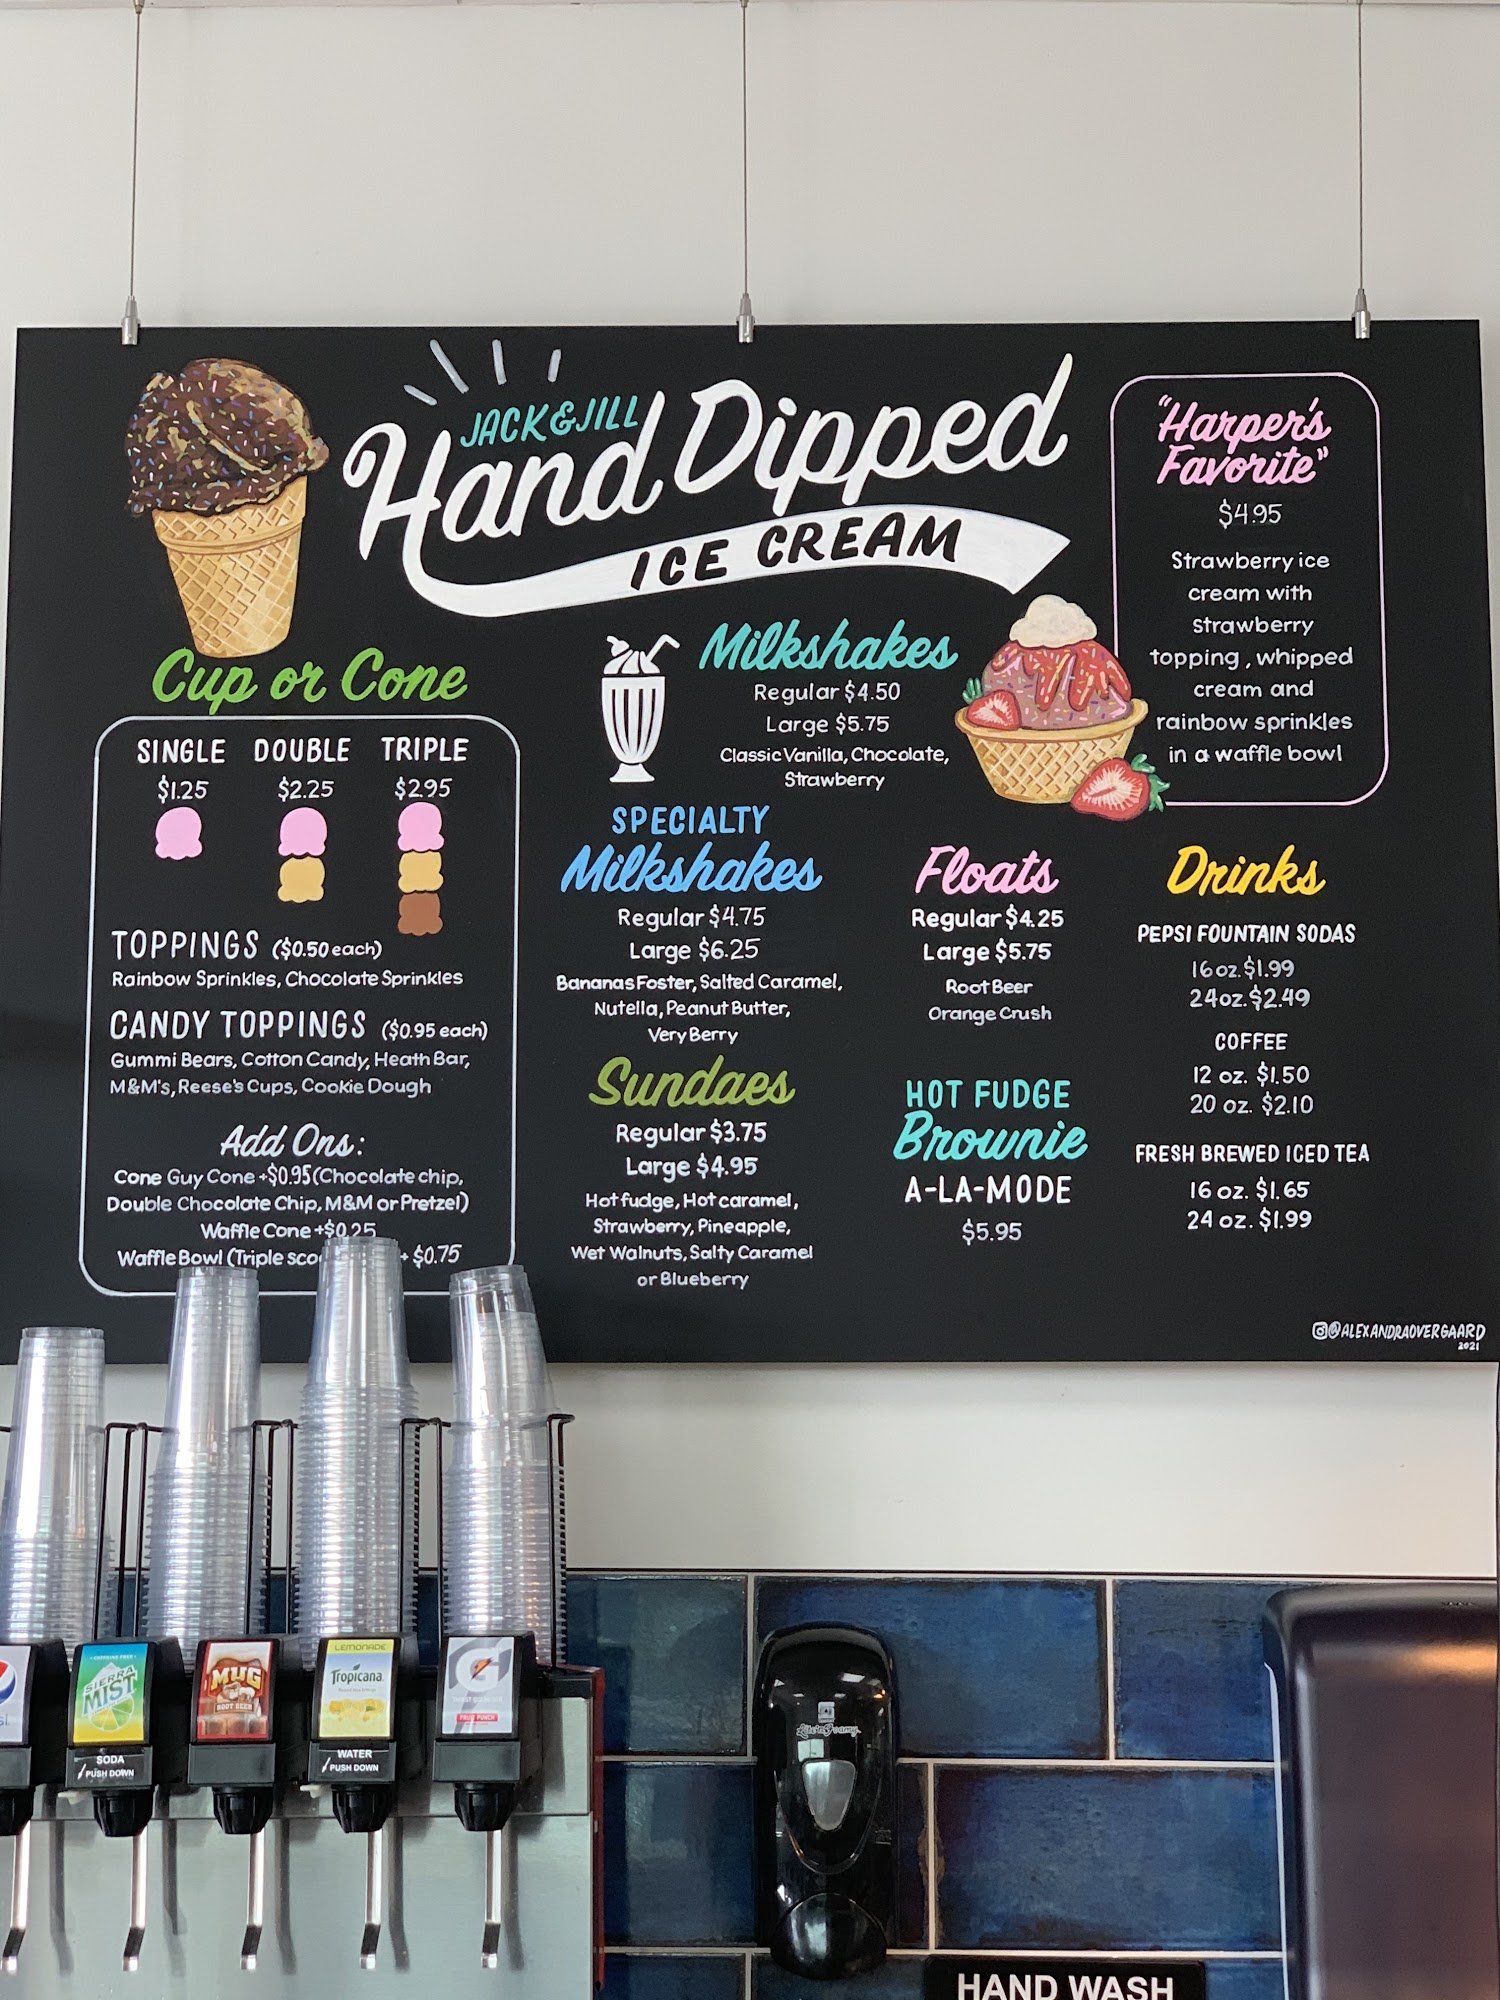 JACK & JILL
Hand Dipped
ICE CREAM
"Harper's
Favorite"
$4.95
Strawberry ice
cream with
strawberry
topping, whipped
cream and
rainbow sprinkles
in a waffle bowl
Cup or Cone
SINGLE DOUBLE TRIPLE
$1.25 $2.25 $2.95
TOPPINGS ($0.50 each)
Rainbow Sprinkles, Chocolate Sprinkles
CANDY TOPPINGS ($0.95 each)
Gummi Bears, Cotton Candy, Heath Bar,
M&M's, Reese's Cups, Cookie Dough
Add Ons:
Cone Guy Cone +$0.95 (Chocolate chip,
Double Chocolate Chip, M&M or Pretzel)
Waffle Cone +$0.25
Waffle Bowl (Triple + $0.75
Milkshakes
Regular $4.50
Large $5.75
Classic Vanilla, Chocolate,
Strawberry
SPECIALTY
Milkshakes
Regular $4.75
Large $6.25
Bananas Foster, Salted Caramel,
Nutella, Peanut Butter,
Very Berry
Sundaes
Regular $3.75
Large $4.95
Hot fudge, Hot caramel,
Strawberry, Pineapple,
Wet Walnuts, Salty Caramel
or Blueberry
Floats
Regular $4.25
Large $5.75
Root Beer
Orange Crush
HOT FUDGE
Brownie
A-LA-MODE
$5.95
Drinks
PEPSI FOUNTAIN SODAS
16 oz. $1.99
24 oz. $2.49
COFFEE
12 oz. $1.50
20 oz. $2.10
FRESH BREWED ICED TEA
16 oz. $1.65
24 oz. $1.99
@ALEXANDRAOVERGAARD
2021
CAFFEINE FREE
SIERRA
MIST
SODA
PUSH DOWN
MUG
ROOT BEER
LEMONADE
Tropicana
WATER
PUSH DOWN
G
THIRST QUENCHER
FRUIT PUNCH
HAND WASH